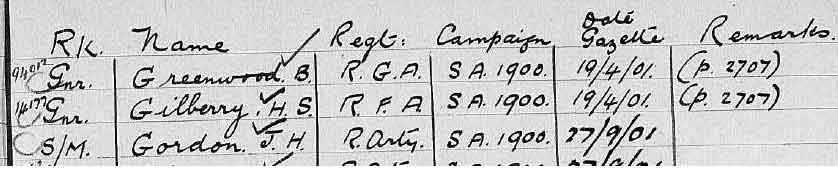 RK. Name Regt: Campaign Date Gazette Remarks.
Gnr. Greenwood. B. R.G.A. S A. 1900. 19/4/01. (p. 2707)
Gnr. Gilberry. H. S. R F A. S A. 1900. 19/4/01. (p. 2707)
S/M. Gordon. J. H. R. Arty. S A. 1900. 27/9/01